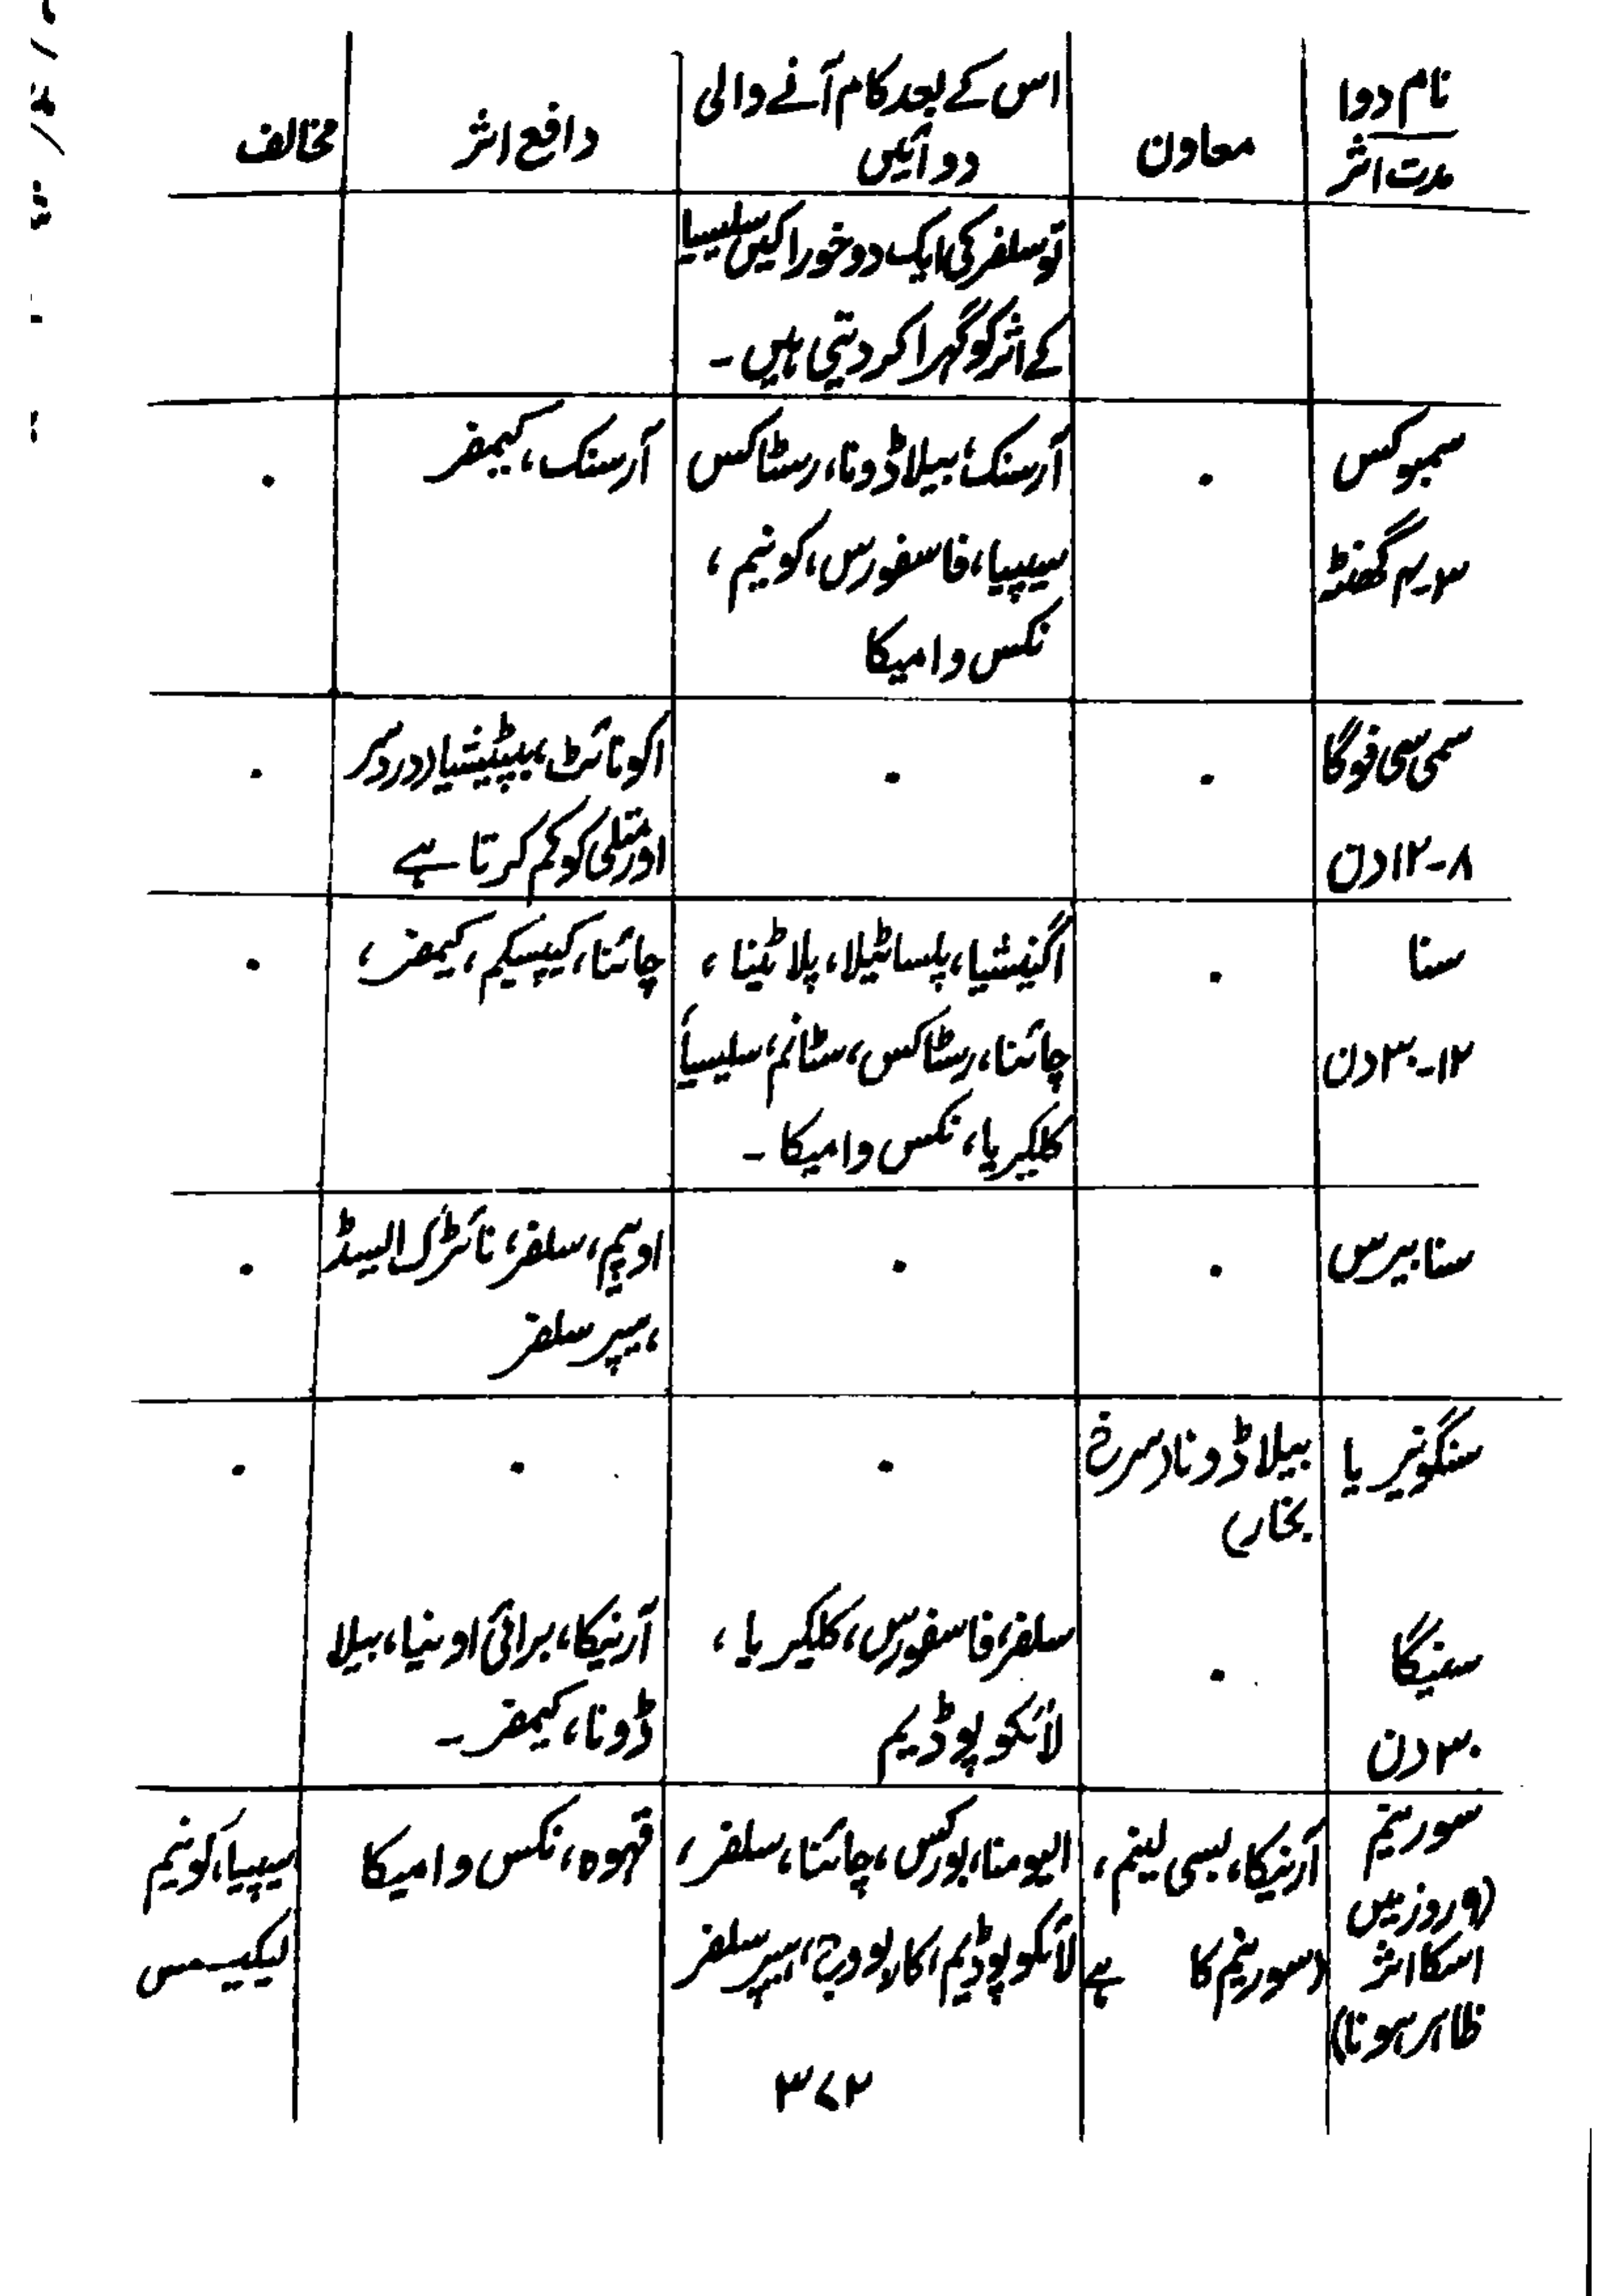 نام دوا
مدت اثر
معاون
اس کے بعد کام آنے والی
دوائیں
دافع اثر
مخالف
تو سلفر کی ایک دو خوراکیں سلیسیا
کے اثر کو گہرا کر دیتی ہیں ۔
سمبوکس
۳-۴ گھنٹہ
.
آرسنک، بیلاڈونا، رسٹاکس
سیپیا، فاسفورس، کونیم ،
نکس وامیکا
آرسنک، کیمفر
.
سمی سی فوگا
۸-۱۲ دن
.
.
اکونائٹ، بیپٹیشیا (درد سر
اور متلی کو کم کرتا ہے
.
سنا
۱۲-۳۰ دن
.
اگنیشیا، پلساٹیلا، پلاٹینا ،
چائنا، رسٹاکس، سٹانم، سلیسیا
کلکیریا، نکس وامیکا ۔
چائنا، کیپسیکم، کیمفر ،
.
سنابیرس
.
.
اوپیم، سلفر، نائٹرک ایسڈ
، ہیپر سلفر
.
سنگونیریا
بیلاڈونا (سرخ
بخار)
.
.
.
سنیگا
۳۰ دن
.
سلفر، فاسفورس، کلکیریا ،
لائکوپوڈیم
آرنیکا، برائی اونیا، بیلا
ڈونا، کیمفر ۔
سورینم
(۹ روز میں
اسکا اثر
ظاہر ہونا)
آرنیکا، بسی لینم ،
(سورینم کا ہے
الیومنا، بورکس، چائنا، سلفر ،
لائکوپوڈیم، کاربوویج، ہیپر سلفر
قہوہ، نکس وامیکا
سیپیا، کونیم
لیکیسس
۳۷۲